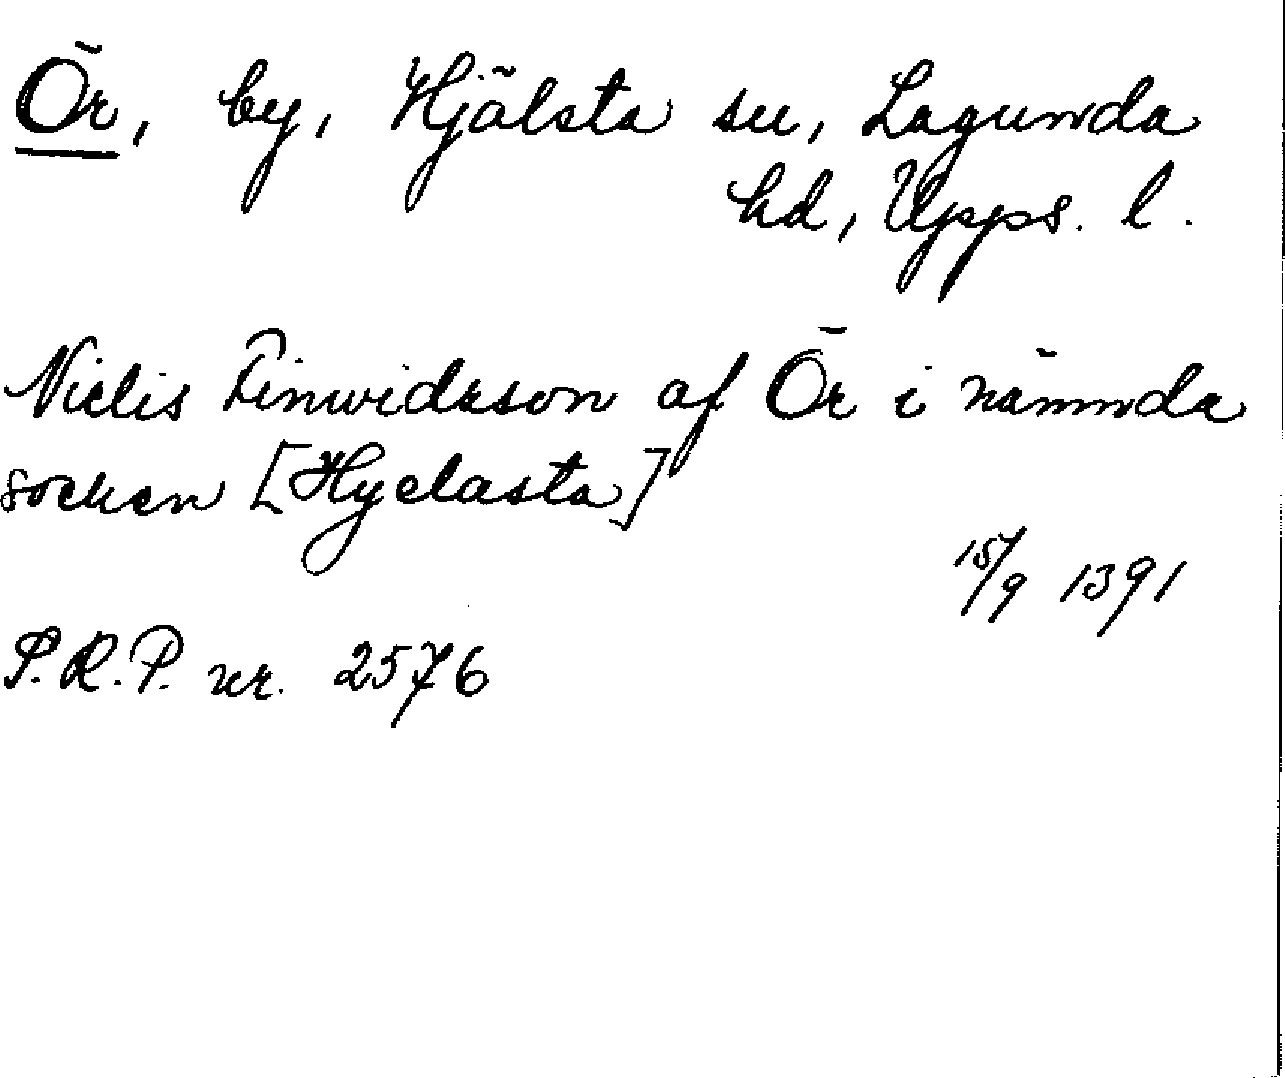 Ör, by, Hjälsta sn, Lagunda
hd, Upps. l.
Niclis Finwidsson af Ör i nämnda
socken [Hyelasta]
15/9 1391
S.R.P. nr. 2576